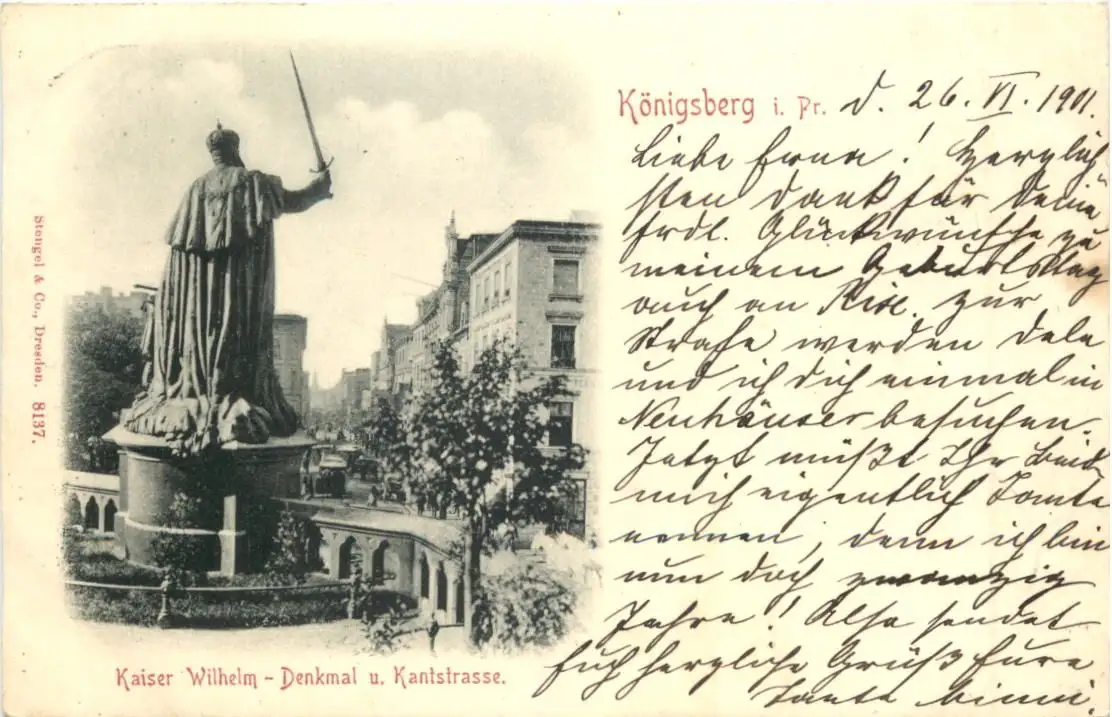 Königsberg i. Pr. d. 26. VI. 1901.
Liebe Erna! Herzlich
sten Dank für Deine
frdl. Glückwünsche zu
meinem Geburtstag
auch an Käte. Zur
Strafe werden Dela
und ich Dich einmal in
Neuhäuser besuchen.
Jetzt müßt Ihr Beide
mich eigentlich Tante
nennen, denn ich bin
nun doch zwanzig
Jahre! Also sendet
Euch herzliche Grüße Eure
Tante
Kaiser Wilhelm - Denkmal u. Kantstrasse.
Stengel & Co., Dresden. 8137.